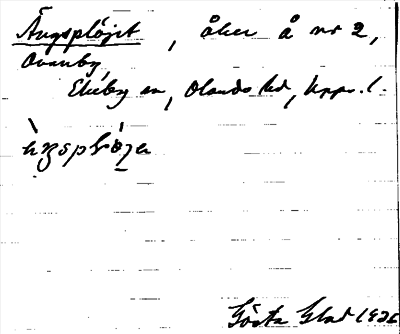 Ängsplöjit, åker å nr 2,
Ovanby,
Ekeby sn, Olands hd, Upps. l.
Gösta Glad 1935